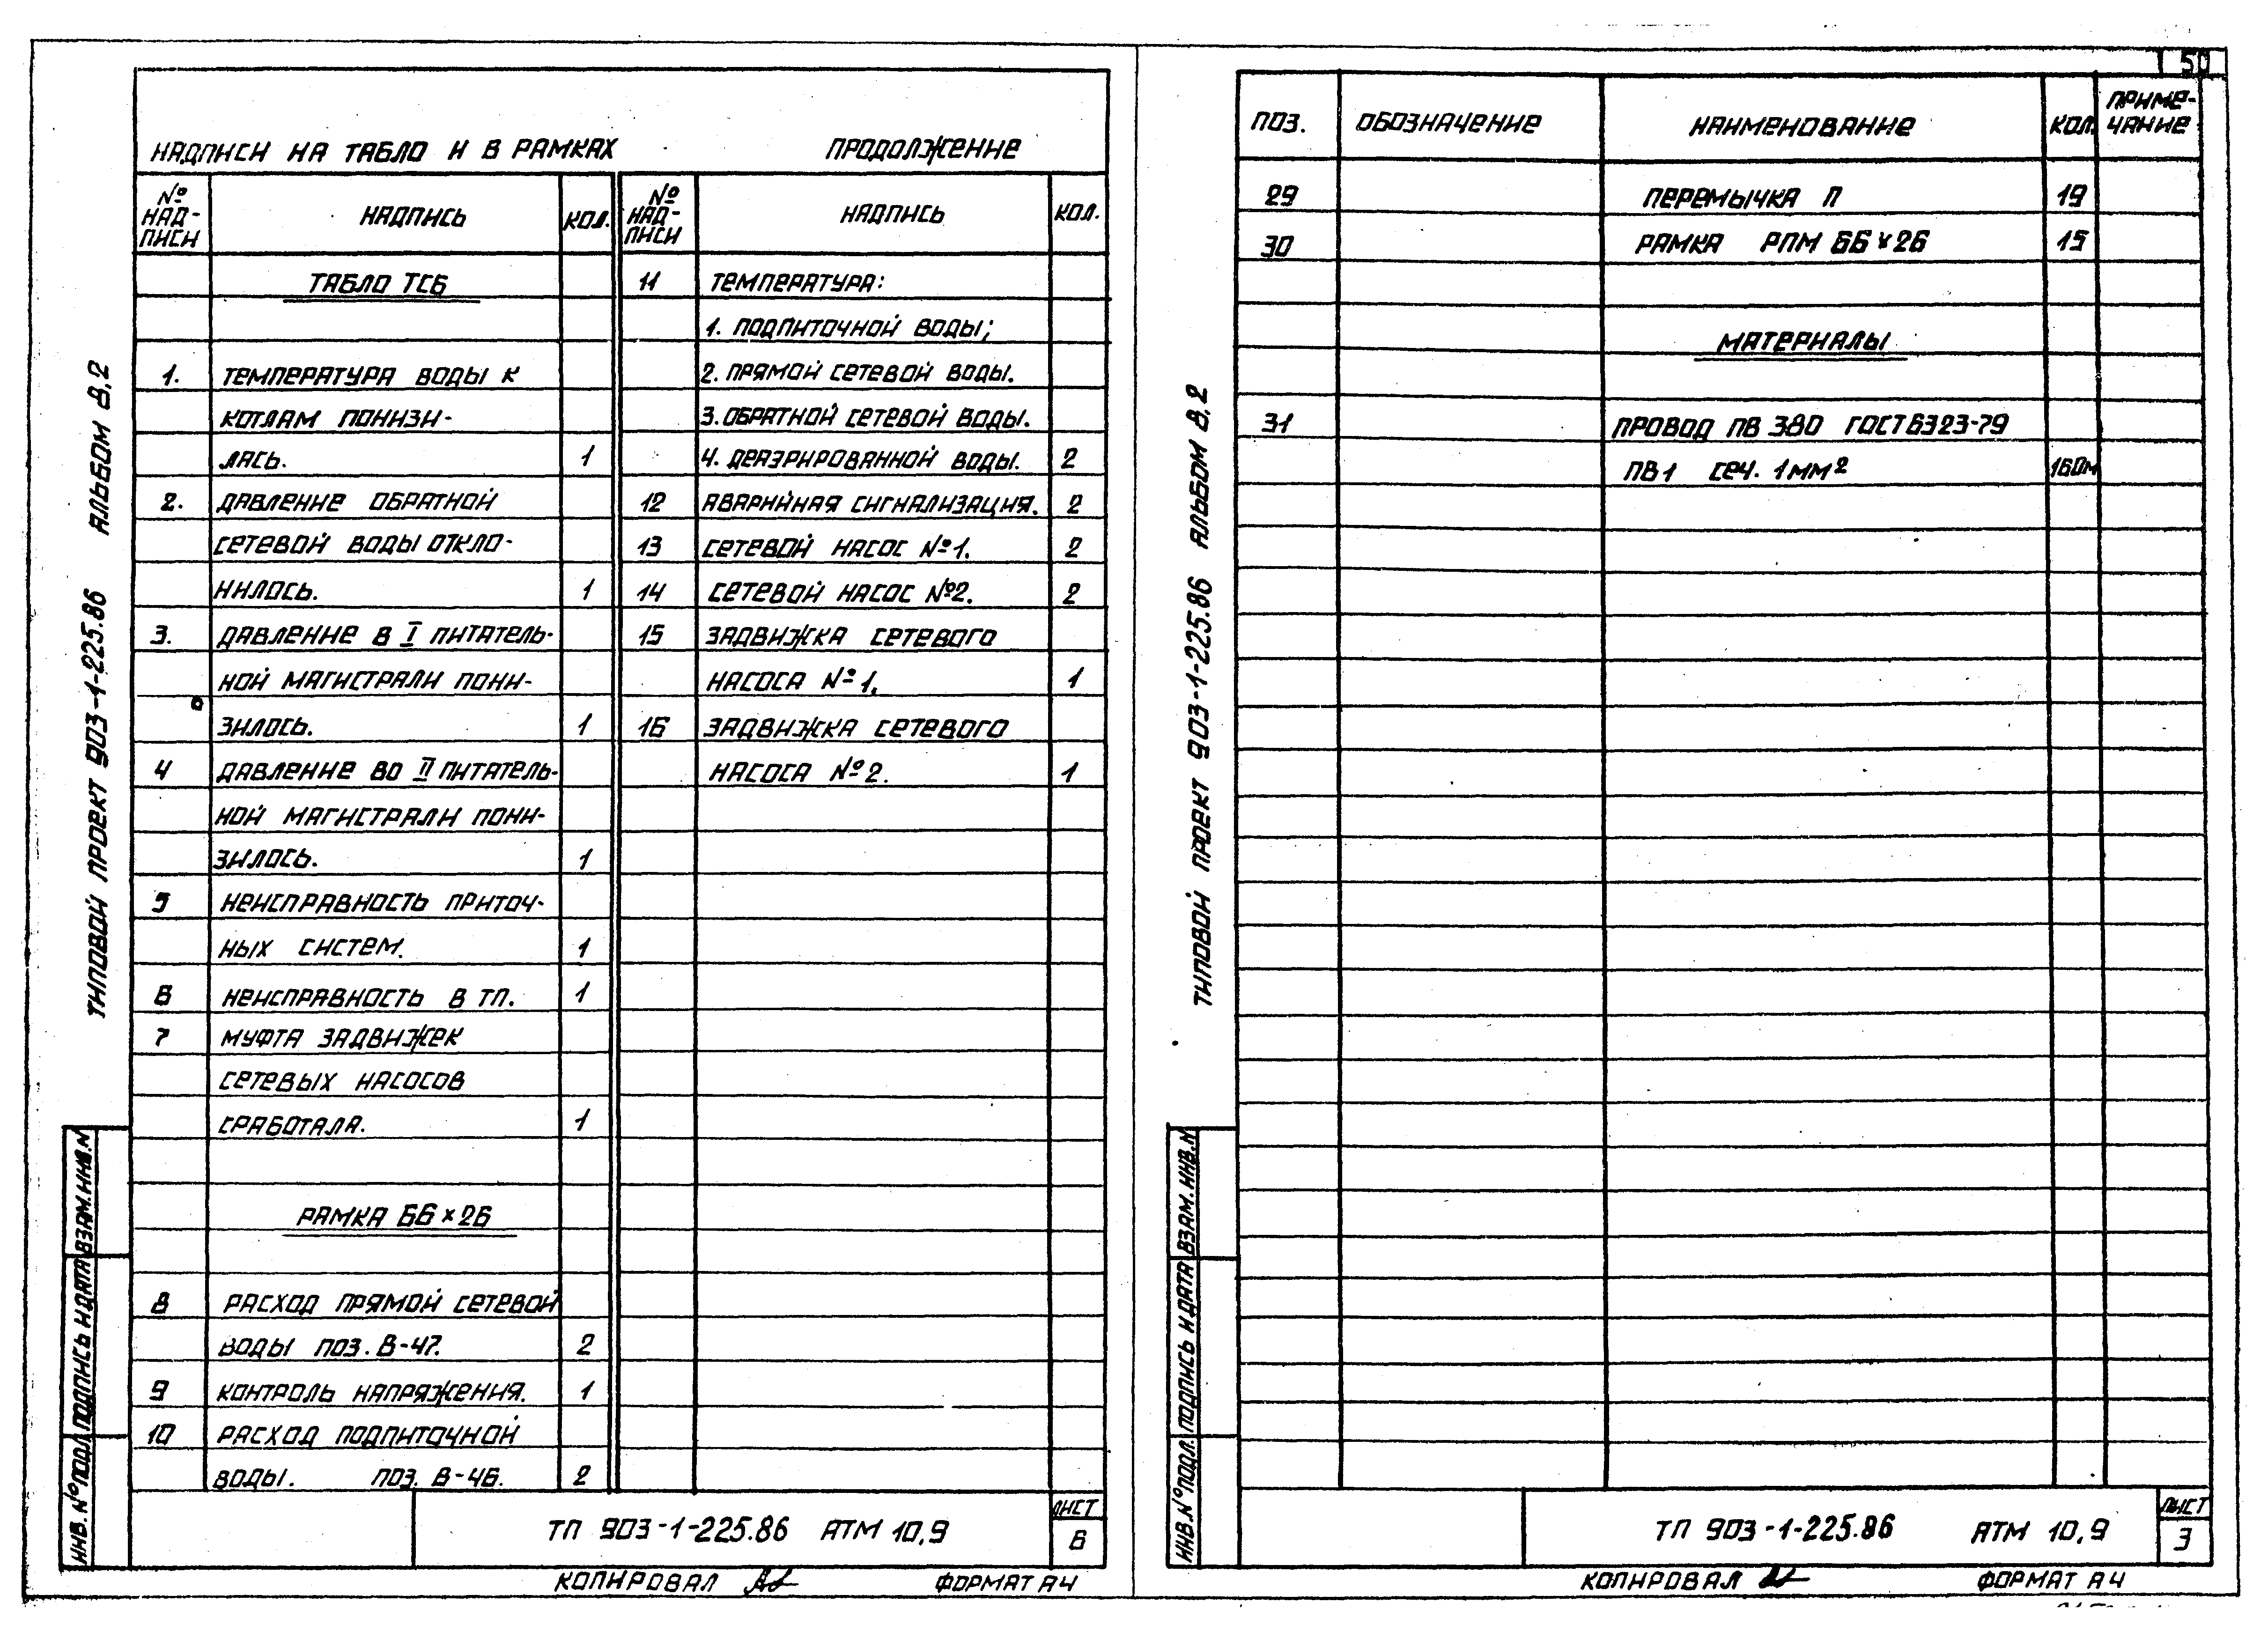 50
НАДПИСИ НА ТАБЛО И В РАМКАХ ПРОДОЛЖЕНИЕ
№ НАД-ПИСИ НАДПИСЬ КОЛ.
ТАБЛО ТСБ
1. ТЕМПЕРАТУРА ВОДЫ К
КОТЛАМ ПОНИЗИ-
ЛАСЬ. 1
2. ДАВЛЕНИЕ ОБРАТНОЙ
СЕТЕВОЙ ВОДЫ ОТКЛО-
НИЛОСЬ. 1
3. ДАВЛЕНИЕ В I ПИТАТЕЛЬ-
НОЙ МАГИСТРАЛИ ПОНИ-
ЗИЛОСЬ. 1
4 ДАВЛЕНИЕ ВО II ПИТАТЕЛЬ-
НОЙ МАГИСТРАЛИ ПОНИ-
ЗИЛОСЬ. 1
5 НЕИСПРАВНОСТЬ ПРИТОЧ-
НЫХ СИСТЕМ. 1
6 НЕИСПРАВНОСТЬ В ТП. 1
7 МУФТА ЗАДВИЖЕК
СЕТЕВЫХ НАСОСОВ
СРАБОТАЛА. 1
РАМКА 66×26
8 РАСХОД ПРЯМОЙ СЕТЕВОЙ
ВОДЫ ПОЗ. В-47. 2
9 КОНТРОЛЬ НАПРЯЖЕНИЯ. 1
10 РАСХОД ПОДПИТОЧНОЙ
ВОДЫ. ПОЗ. В-46. 2
№ НАД-ПИСИ НАДПИСЬ КОЛ.
11 ТЕМПЕРАТУРА:
1. ПОДПИТОЧНОЙ ВОДЫ;
2. ПРЯМОЙ СЕТЕВОЙ ВОДЫ.
3. ОБРАТНОЙ СЕТЕВОЙ ВОДЫ.
4. ДЕАЭРИРОВАННОЙ ВОДЫ. 2
12 АВАРИЙНАЯ СИГНАЛИЗАЦИЯ. 2
13 СЕТЕВОЙ НАСОС №1. 2
14 СЕТЕВОЙ НАСОС №2. 2
15 ЗАДВИЖКА СЕТЕВОГО
НАСОСА №1. 1
16 ЗАДВИЖКА СЕТЕВОГО
НАСОСА №2. 1
ТИПОВОЙ ПРОЕКТ 903-1-225.86 АЛЬБОМ 8.2
ИНВ. № ПОДЛ. ПОДПИСЬ И ДАТА ВЗАМ. ИНВ. №
ТП 903-1-225.86 АТМ 10,9
ЛИСТ
6
КОПИРОВАЛ
ФОРМАТ А4
ПОЗ. ОБОЗНАЧЕНИЕ НАИМЕНОВАНИЕ КОЛ. ПРИМЕ-ЧАНИЕ
29 ПЕРЕМЫЧКА П 19
30 РАМКА РПМ 66×26 15
МАТЕРИАЛЫ
31 ПРОВОД ПВ 380 ГОСТ 6323-79
ПВ1 СЕЧ. 1 ММ² 160М
ТИПОВОЙ ПРОЕКТ 903-1-225.86 АЛЬБОМ 8.2
ИНВ. № ПОДЛ. ПОДПИСЬ И ДАТА ВЗАМ. ИНВ. №
ТП 903-1-225.86 АТМ 10,9
ЛИСТ
3
КОПИРОВАЛ
ФОРМАТ А4